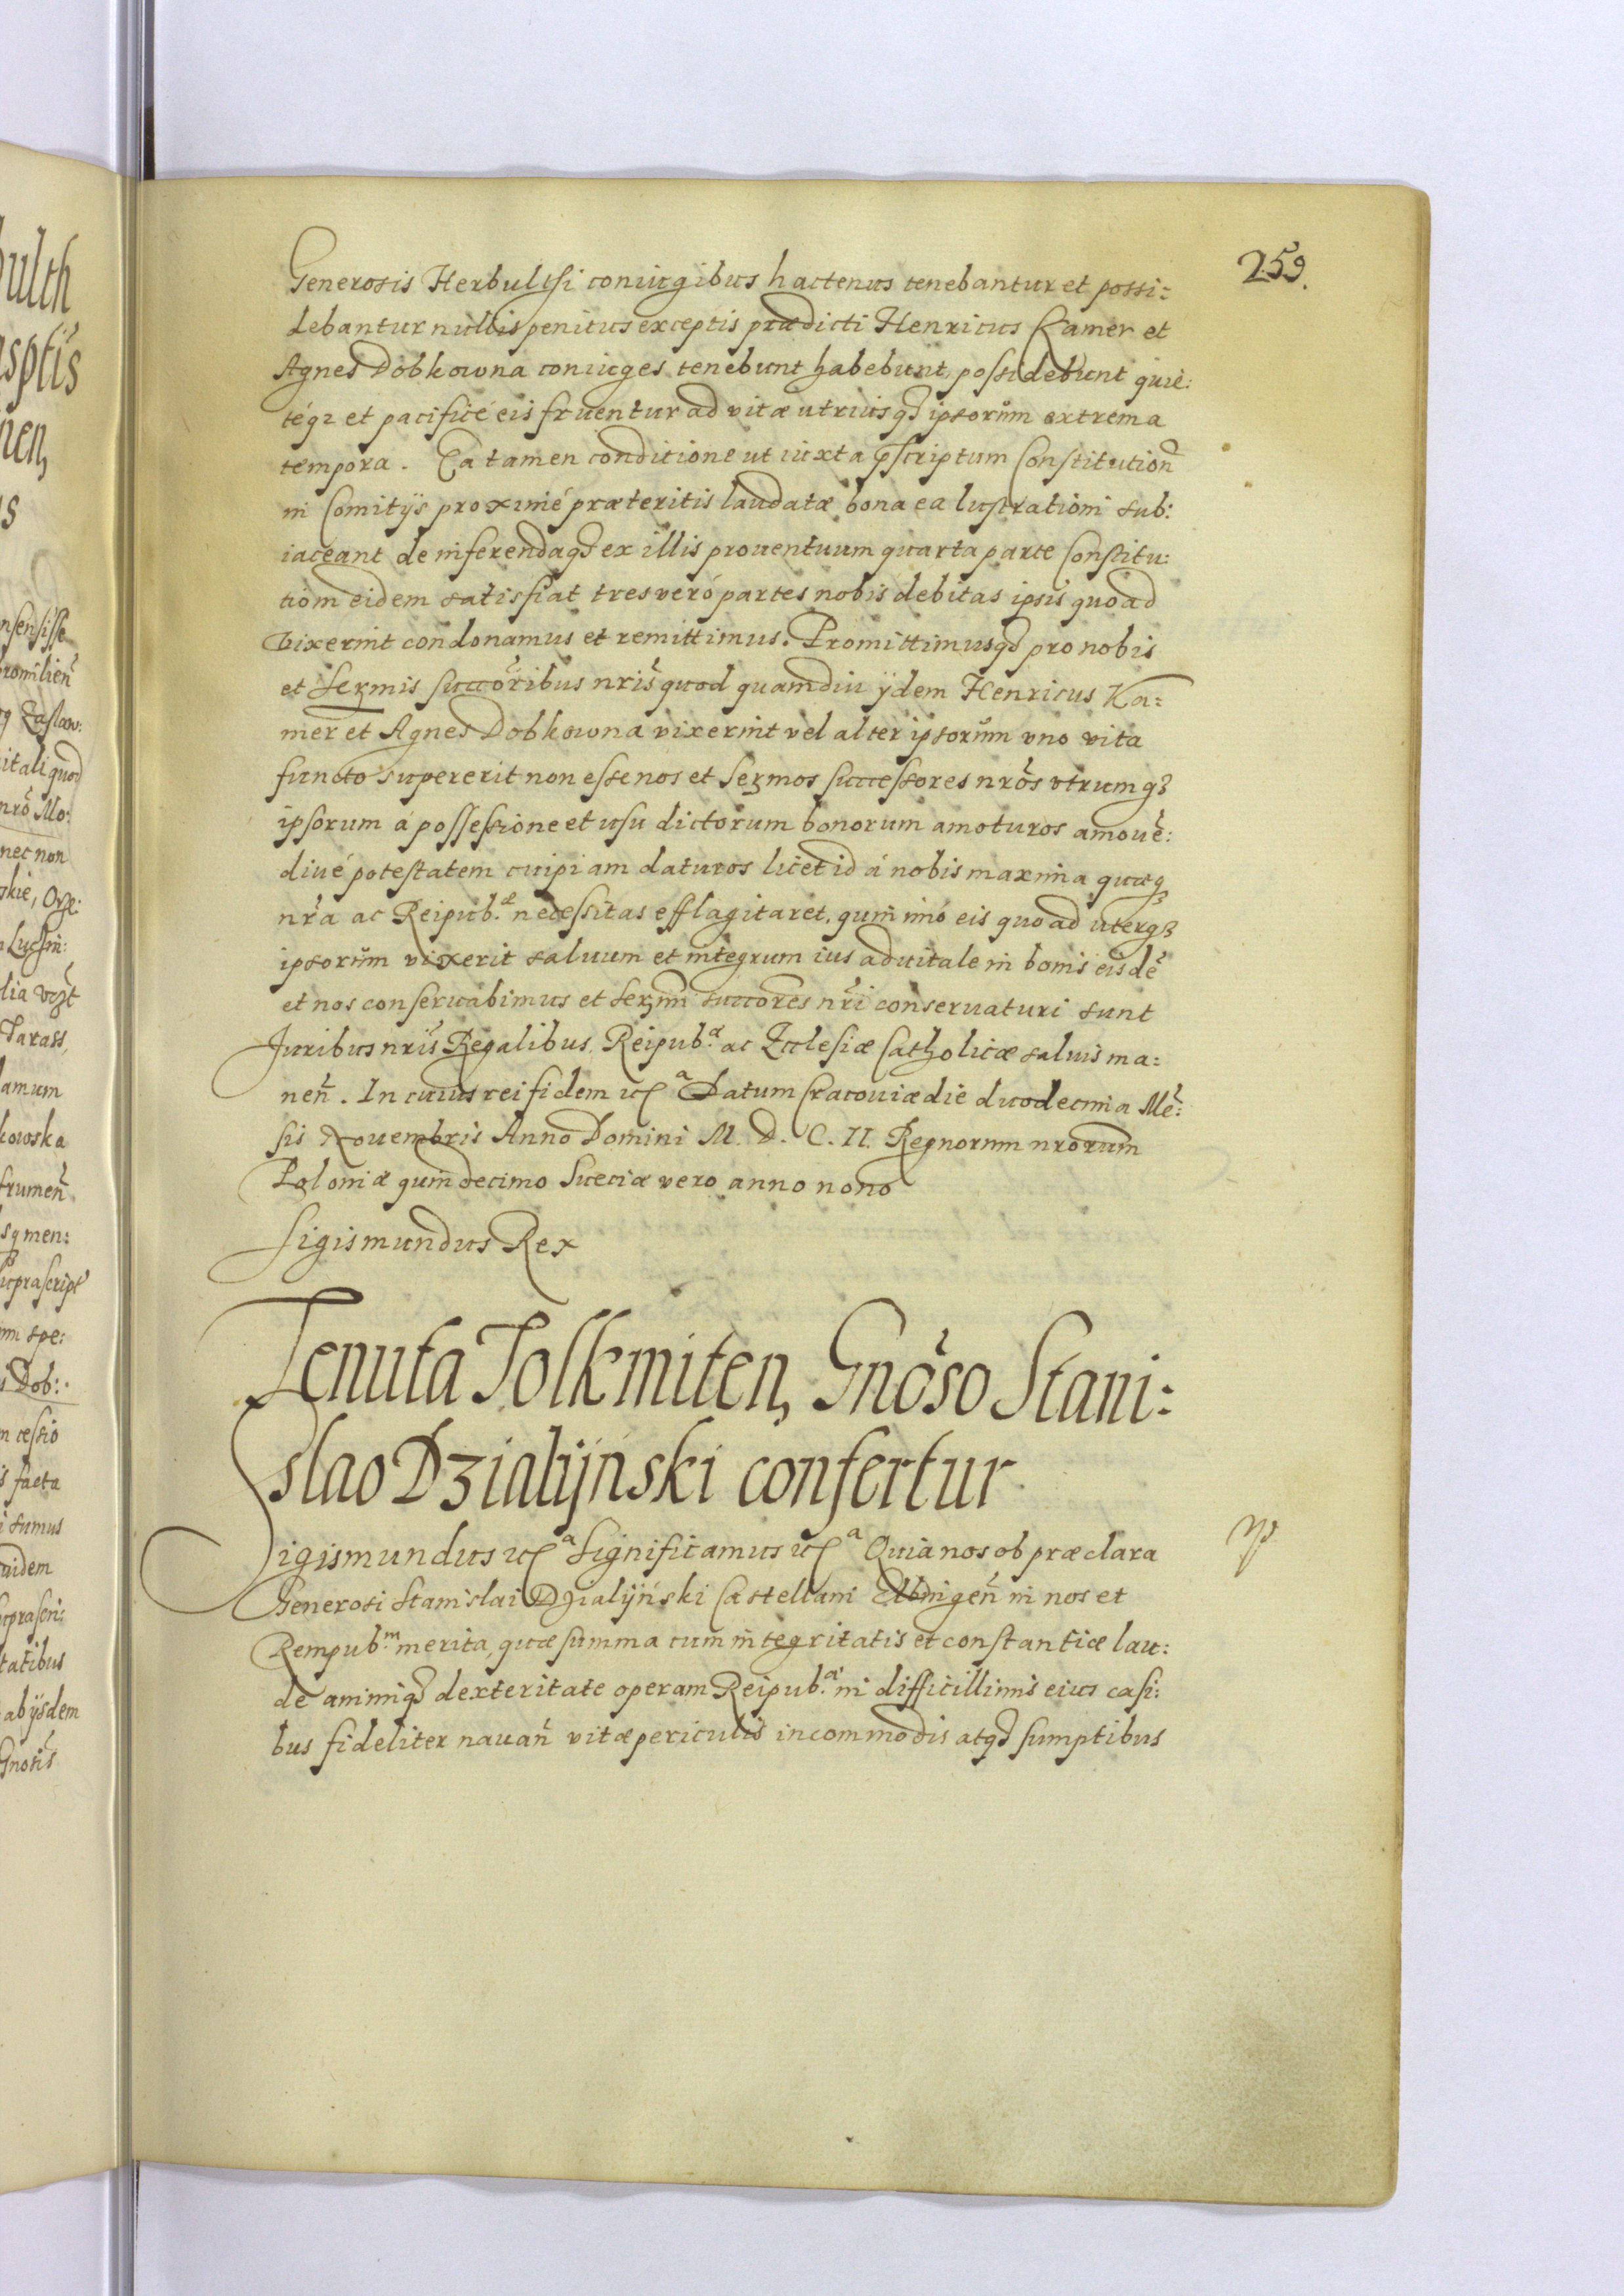 259.
Generosis Herbultsi coniugibus hactenus tenebantur et possi:
debantur nullis penitus exceptis prædicti Henricus Kamer et
Agnes Dobkowna coniuges tenebunt habebunt, possidebunt quiè:
téq₃ et pacificé eis fruentur ad vitæ utriusq₃ ipsorum extrema
tempora. Ea tamen conditione ut iuxta p̄scriptum Constitution̄
in Comitijs proximé præteritis laudatæ bona ea lustrationi sub:
iaceant de inferendaq₃ ex illis prouentuum quarta parte Constitu:
tioni eidem satisfiat tres veró partes nobis debitas ipsis quoad
vixerint condonamus et remittimus. Promittimusq₃ pro nobis
et Serm̄is succōribus nrīs quod quamdiu ijdem Henricus Ka=
mer et Agnes Dobkowna vixerint vel alter ipsorum vno vita
functo supererit non esse nos et Serm̄os successores nrōs vtrumq₃
ipsorum á possessione et usu dictorum bonorum amoturos amouē:
diué potestatem cuipiam daturos licet id á nobis maxima quæq₃
nrā ac Reipub.æ necessitas efflagitaret, quin imó eis quoad uterq₃
ipsorum vixerit saluum et integrum ius aduitale in bonis eisdē
et nos conseruabimus et Serm̄i succōres nrī conseruaturi sunt
Juribus nrīs Regalibus, Reipub.æ ac Ecclesiæ Catholicæ saluis ma=
nen̄. In cuius rei fidem etc.a Datum Cracouiæ die duodecima Mē:
sis Nouembris Anno Domini M. D. C. II. Regnorum nrorum
Poloniæ quindecimo Sueciæ vero anno nono
Sigismundus Rex
Tenuta Tolkmiten, Gnōso Stani:
slao Dzialijński confertur
Sigismundus etc.a Significamus etc.a Quia nos ob præclara
Generosi Stanislai Dzialijński Castellani Elbingen̄ in nos et
Rempub.m merita, quæ summa cum integritatis et constantiæ lau:
de animiq₃ dexteritate operam Reipub.æ in difficillimis eius casi:
bus fideliter nauan̄ vitæ periculis incommodis atq₃ sumptibus